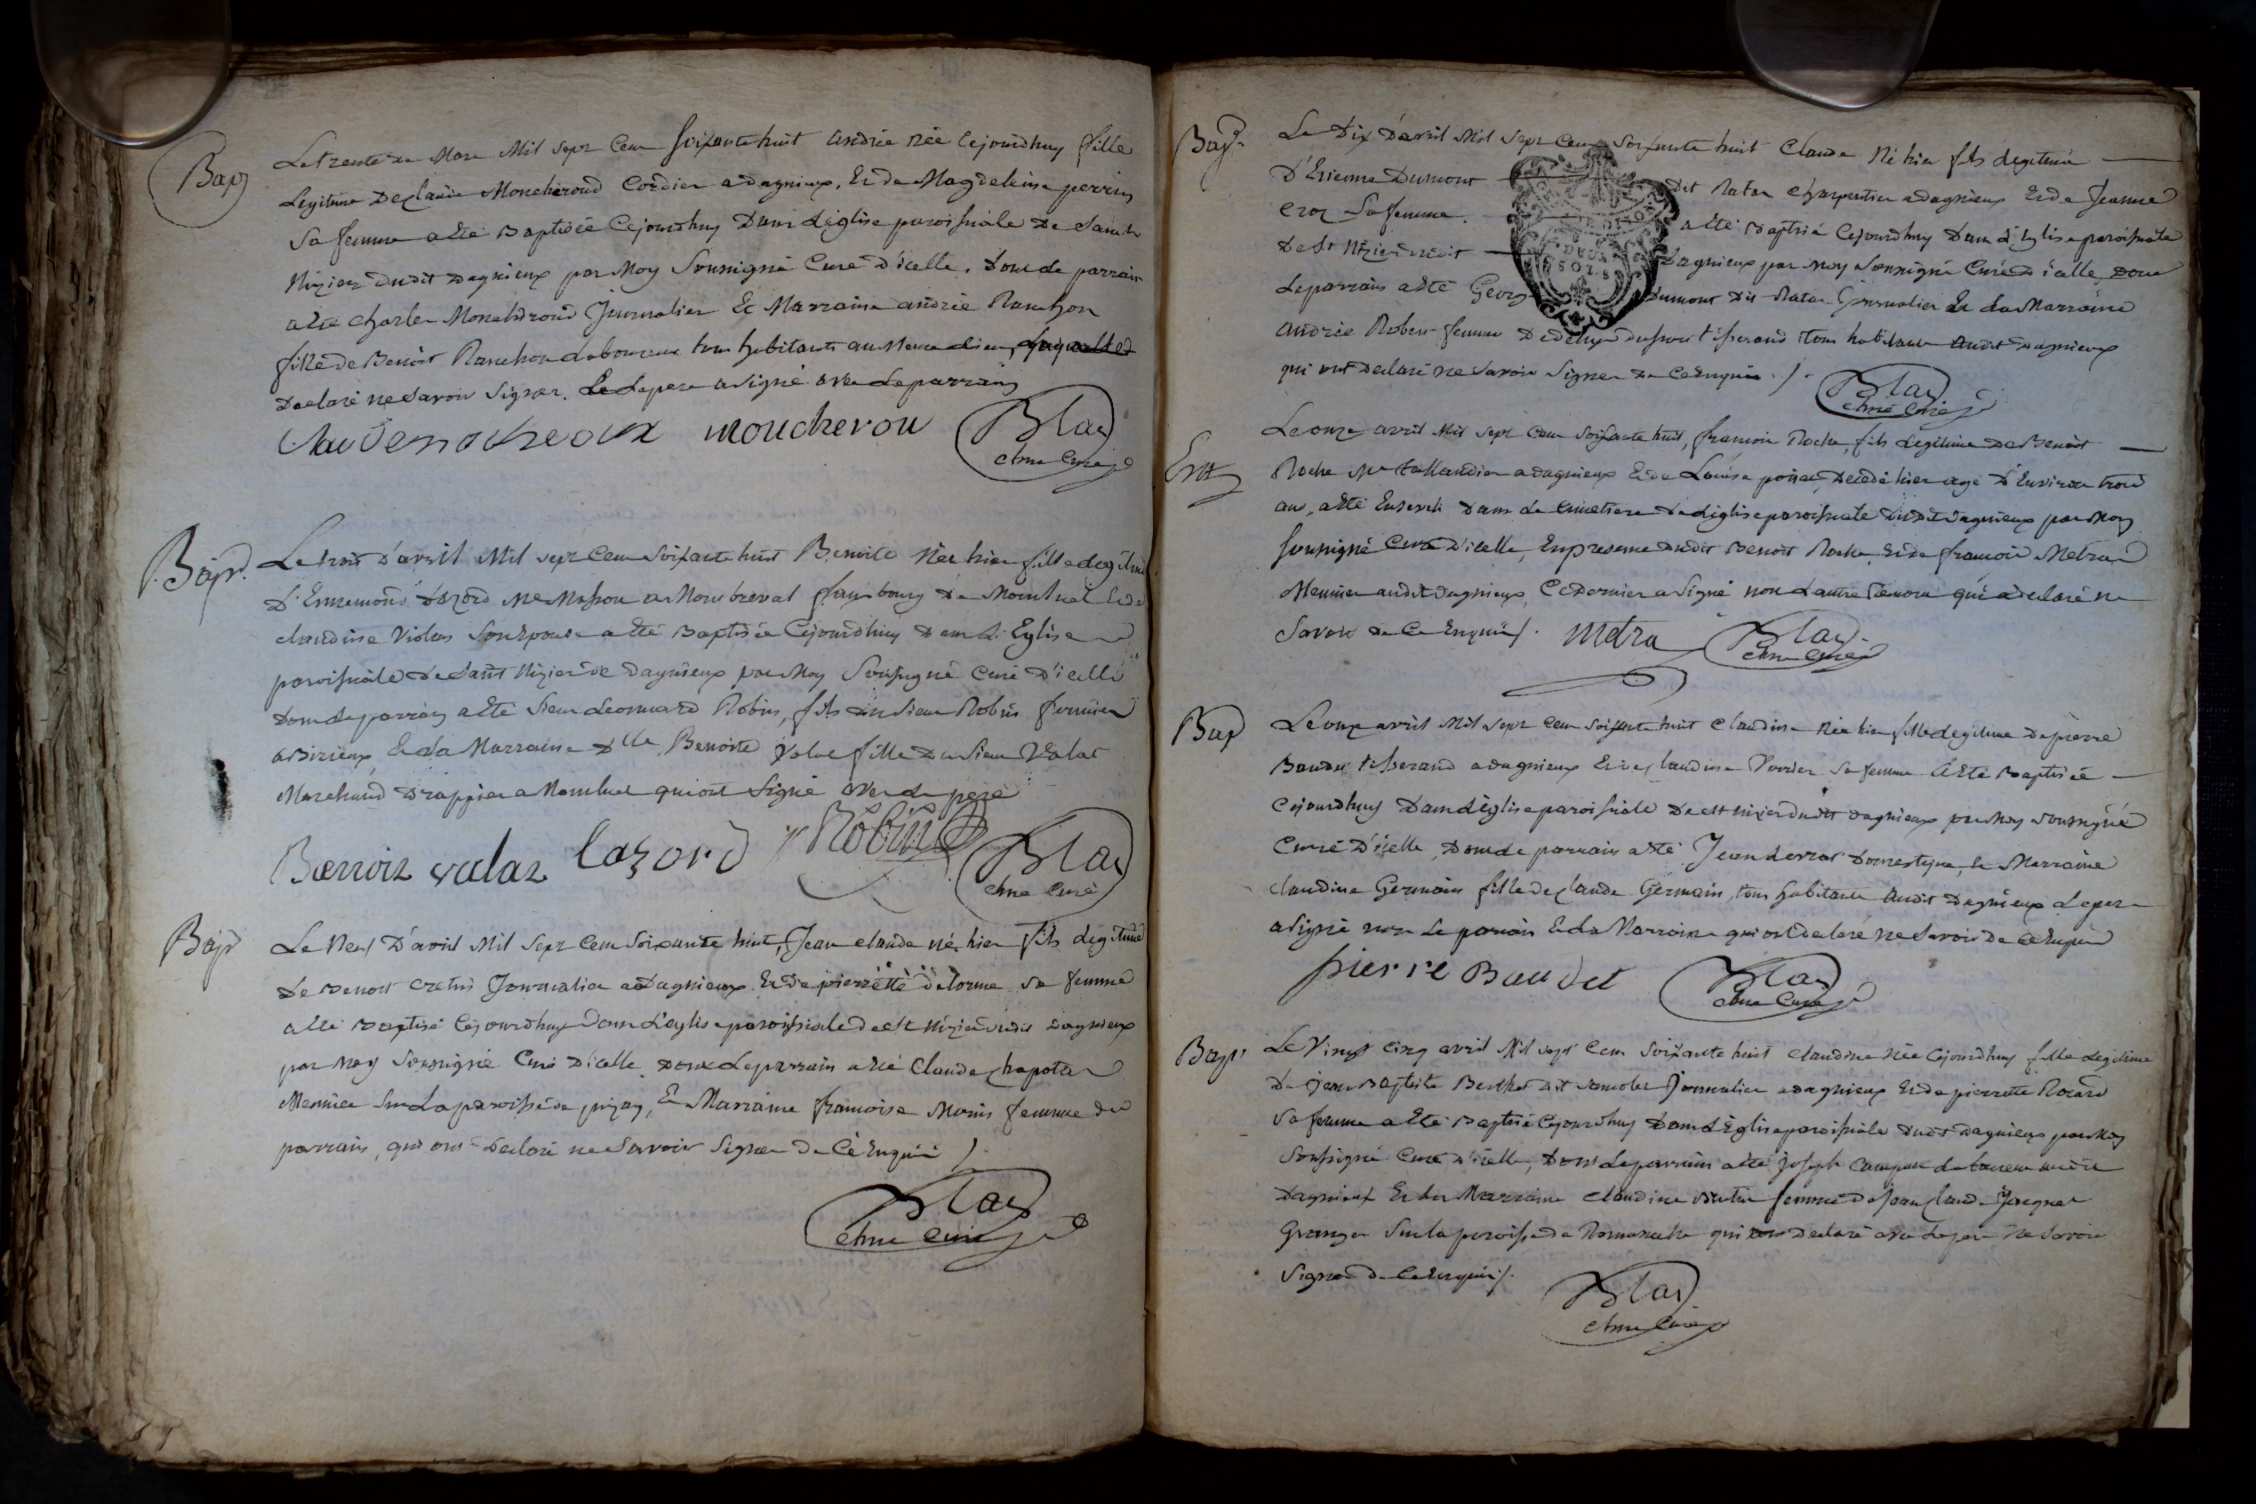 Bap
Le trente de Mars Mil sept Cens soixante huit andrée née Cejourdhuy fille
Legitime De claude Moncheroud Cordier a dagnieux, Et de Magdeleine perrin
Sa femme a été Baptisée Cejourdhuy Dans L'église paroissiale De Saint
Nizier dudit dagnieux par Moy Soussigné Curé D'icelle. Dont de parrain
a été charles Moncheroud Journalier Et Marraine andrée Ranchon
fille de Benoit Ranchon Laboureur tous habitants au Meme lieu,
Declaré ne Savoir Signer. Le pere a signé avec Le parrain
moucherou
Blas
curé
Bapt.
Le trois D'avril Mil sept Cens Soixante huit Benoite Née hier fille Legitime
D'Ennemond Lazord Me Masson a Montbreval fauxbourg de Montluel Et de
claudine Violas Son Epouse a été Baptisée Cejourdhuy Dans L'Eglise
paroissiale de Saint Nizier de Dagnieux par Moy Soussigné Curé D'icelle
Dont Le parrain a été Sieur Leonnard Robin, fils du Sieur Robin fermier
a Birieux, Et La Marraine Dlle Benoite Valat fille Du Sieur Valat
Marchand Drappier a Montluel qui ont Signé avec Le pere
Benoit valat lazord Robin
Blas
curé
Bapt
Le Neuf D'avril Mil Sept Cens Soixante huit, Jean claude né hier fils Legitime
De Benoit Journalier a Dagnieux Et de pierrette delorme sa femme
a été Baptisé Cejourdhuy Dans L'eglise paroissiale de St Nizier dudit Dagnieux
par Moy Soussigné Curé D'icelle Dont Le parrain a été Claude chapotar
Meunier Sur La paroisse de pizay, Et Marraine francoise Morin femme du
parrain, qui ont Declaré ne Savoir Signer De Ce Enquis
Blas
curé
Bapt
Le Dix D'avril Mil Sept Cens Soixante huit Claude Né hier fils Legitime
D'Etienne Dumont dit Natar charpentier a dagnieux Et de Jeanne
Croz Sa femme. a été Baptisé Cejourdhuy Dans L'Eglise paroissiale
De St Nizier dudit Dagnieux par Moy Soussigné Curé D'icelle Dont
Le parrain a été George Dumont Dit Natar Journalier Et La Marraine
Andrée Robert femme De tisserand tous habitans audit dagnieux
qui ont Declaré ne Savoir Signer De Ce Enquis.
SOLS
Blas
curé
Ent
Le onze avril Mil Sept Cens Soixante huit, francois Roche, fils Legitime De Benoit
Roche Me taillandier a dagnieux Et de Louise, Decedé hier agé D'Environ trois
ans, a été Enseveli Dans Le Cimetiere de L'église paroissiale dudit dagnieux par Moy
Soussigné Curé D'icelle, En presence dudit Benoit Roche, Et de francois Metra
Meunier audit dagnieux, Ce Dernier a Signé non L'autre temoin qui a declaré ne
Savoir de Ce Enquis. metra
Blas.
curé
Bap
Le onze avril Mil Sept Cens Soixante huit Claudine Née hier fille Legitime De pierre
Baudet tisserand a dagnieux Et de claudine Verrier Sa femme a été Baptisée
Cejourdhuy Dans L'église paroissiale De St nizier dudit dagnieux par Moy Soussigné
Curé D'icelle, Dont Le parrain a été Jean Domestique, La Marraine
claudine Germain fille de claude Germain, tous habitants audit Dagnieux Le pere
a signé non Le parrain Et La Marraine qui ont declaré ne Savoir de Ce Enquis
pierre Baudet
Blas
curé
Bapt
Le Vingt Cinq avril Mil sept Cens Soixante huit Claudine Née Cejourdhuy fille Legitime
De Jean Baptiste Berthet dit Journalier a dagnieux Et de pierrette Rotard
Sa femme a été Baptisé Cejourdhuy Dans L'Eglise paroissiale dudit dagnieux par Moy
Soussigné Curé D'icelle, Dont Le parrain a été Joseph Laboureur
Dagnieux Et La Marraine Claudine femme de Jean Claude Jacquet
Granger Sur La paroisse de qui ont Declaré avec Le pere Ne Savoir
Signer de Ce Enquis.
Blas.
curé